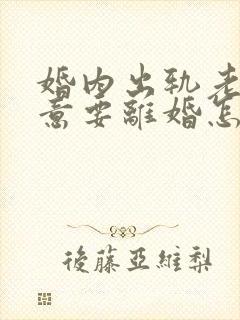 婚内出轨老
意要離婚怎
後藤亞維梨